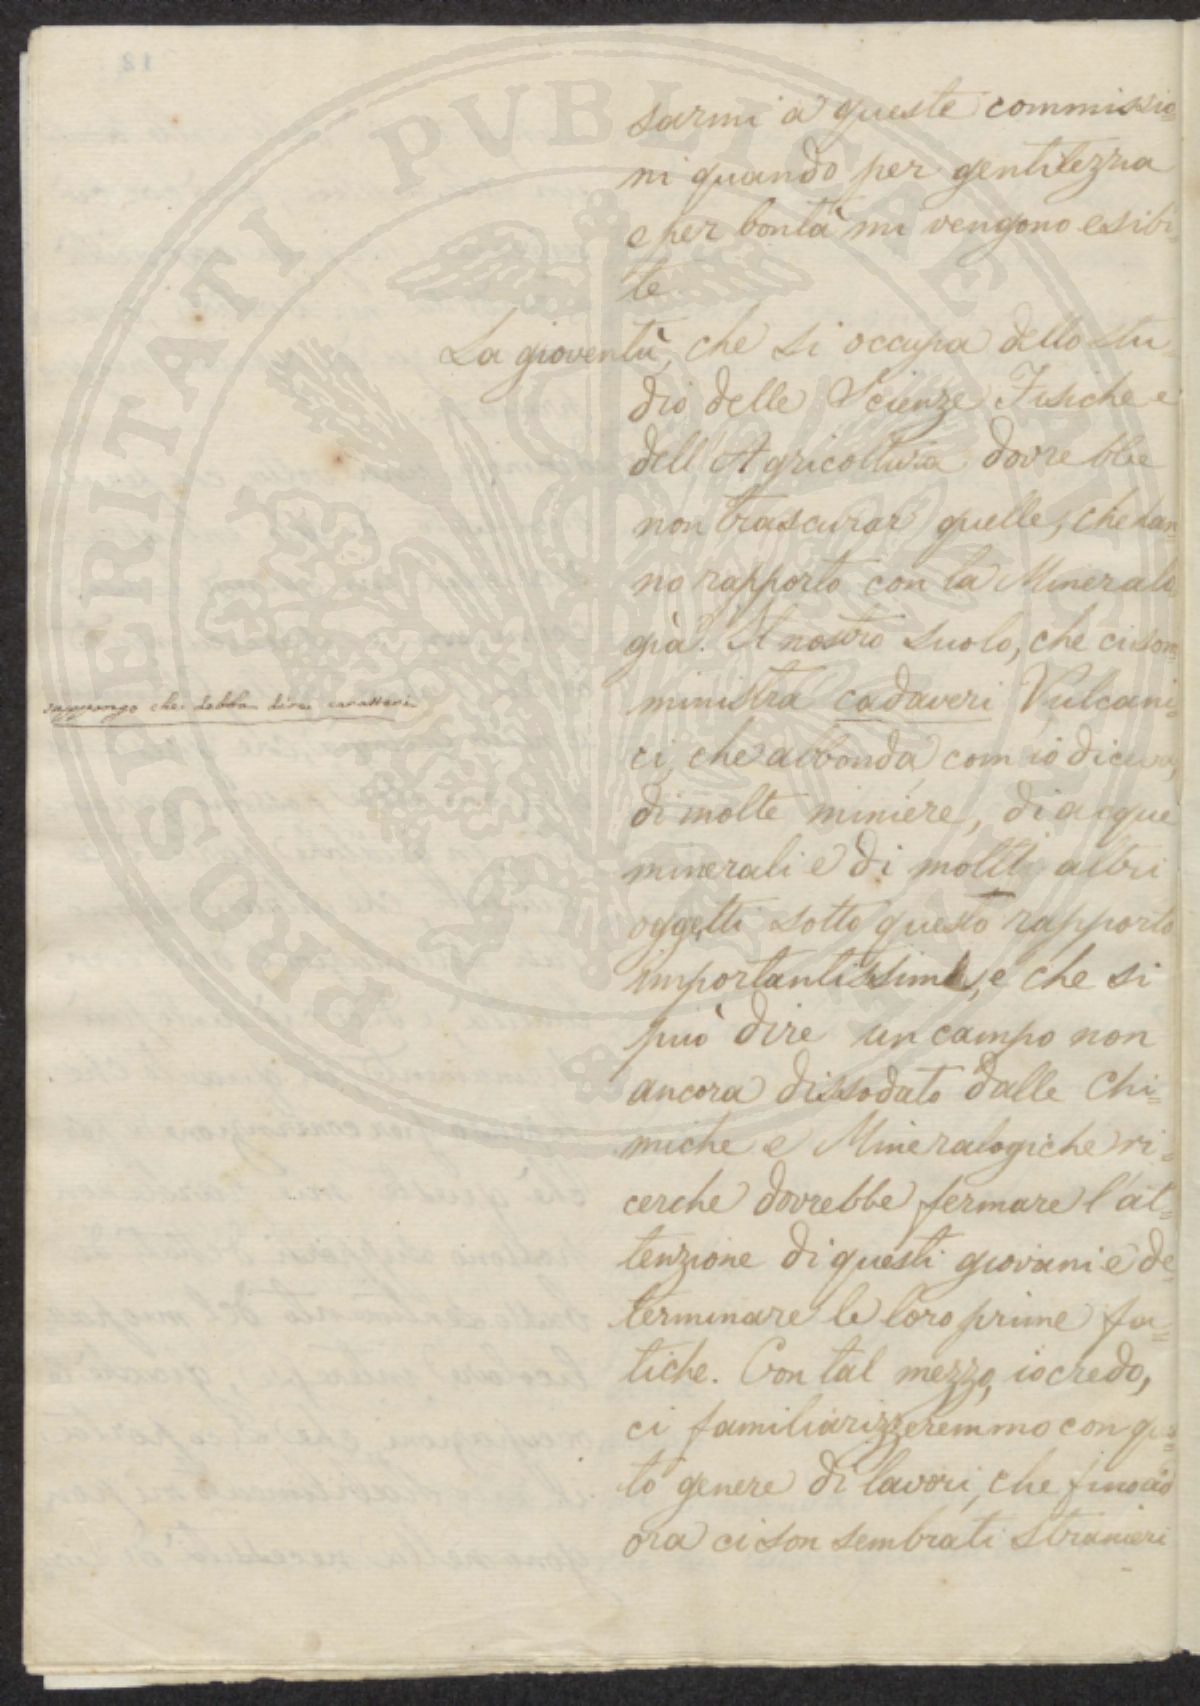 PROSPERITATI PVBLICAE AVGENDAE
sarmi a queste commissio=
ni quando per gentilezza
e per bontà mi vengono esibi=
te
La gioventù, che si occupa dello stu=
dio delle Scienze Fisiche e
dell'Agricoltura dovrebbe
non trascurar quelle, che han=
no rapporto con la Mineralo
già. Il nostro suolo, che ci som=
ministra cadaveri Vulcani=
suppongo che debba dire crateri
ci, che abbonda, com'io diceva,
di molte miniere, di acque
minerali e di molti altri
oggetti sotto questo rapporto
importantissimi, e che si
può dire un campo non
ancora dissodato dalle Chi=
miche e Mineralogiche ri=
cerche dovrebbe fermare l'at=
tenzione di questi giovani e de=
terminare le loro prime fa=
tiche. Con tal mezzo, io credo,
ci familiarizzeremmo con que=
to genere di lavori, che fino ad
ora ci son sembrati stranieri